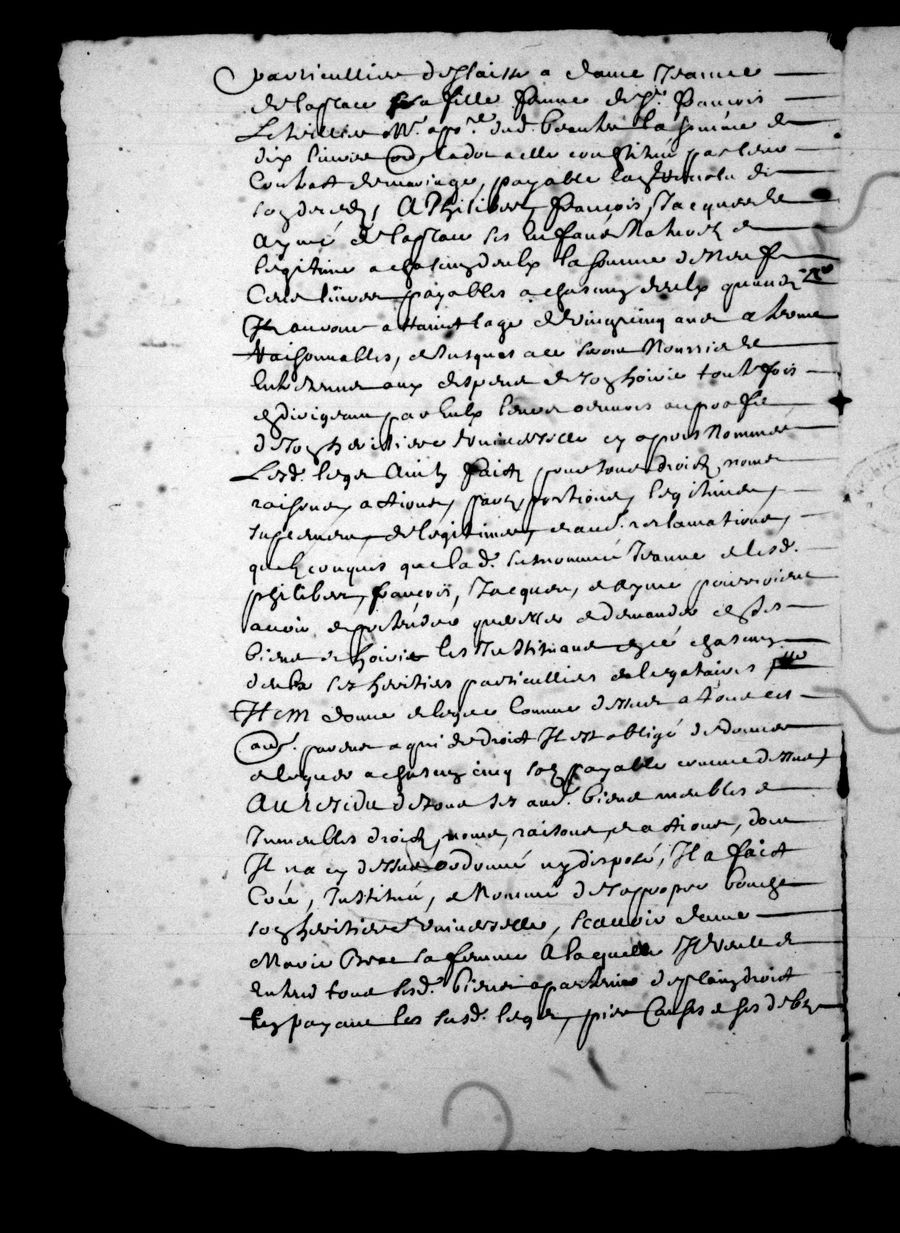 particulliere delaisse a dame Jeanne
de laplace sa fille femme de Sr. francois
Letellier Mre. appre. dud. la somme de
dix livres outre la dot a elle constitué par leur
Contrat de mariage, payable la fin de
son deces, A Philibert, francois, Jacques &
Aymé de laplace ses enfans naturelz &
legitime a chascung deulx la somme de Neuf
Cens livres payables a chascung deulx quand
Ilz auront attainct laage de vingt cinq ans a termes
Raisonnables, & jusques a ce seront Nourris &
Entretenus aux despens de son hoirie toutefois
par eulx leurs au proffit
de son heritiere universelle cy apres Nommée
Lesd. legs Ainsy faictz pour tous droictz, noms
raisons, actions, partz, portions, legitimes,
suplement de legitimes, & aud. reclamations
quelconques que lad. susnommée Jeanne & lesd.
philibert, francois, Jacques, & ayme pourroient
avoir & pretendre quereller & demander en ses
biens & hoirie les Instituant en ce chascung
deulx ses heritiers particulliers & legataires
Item donne & legue comme dessus a tous ces
aud. parens a qui de droit Il est obligé de donner
& leguer a chascung cinq solz payable comme dessus
Au residu de tous ses aud. biens meubles &
Immeubles droictz, noms, raisons, & actions, dont
Il na cy dessus ordonné ny disposé, Il a faict
Créé, Institué, & Nommé de sa propre bouche
son heritiere universelle, scavoir dame
Marie Brac sa femme A laquelle Il veult &
Entend tous sesd. biens apartenir de plain droict
En payant les susd. legs, pies Causes & ses debtes